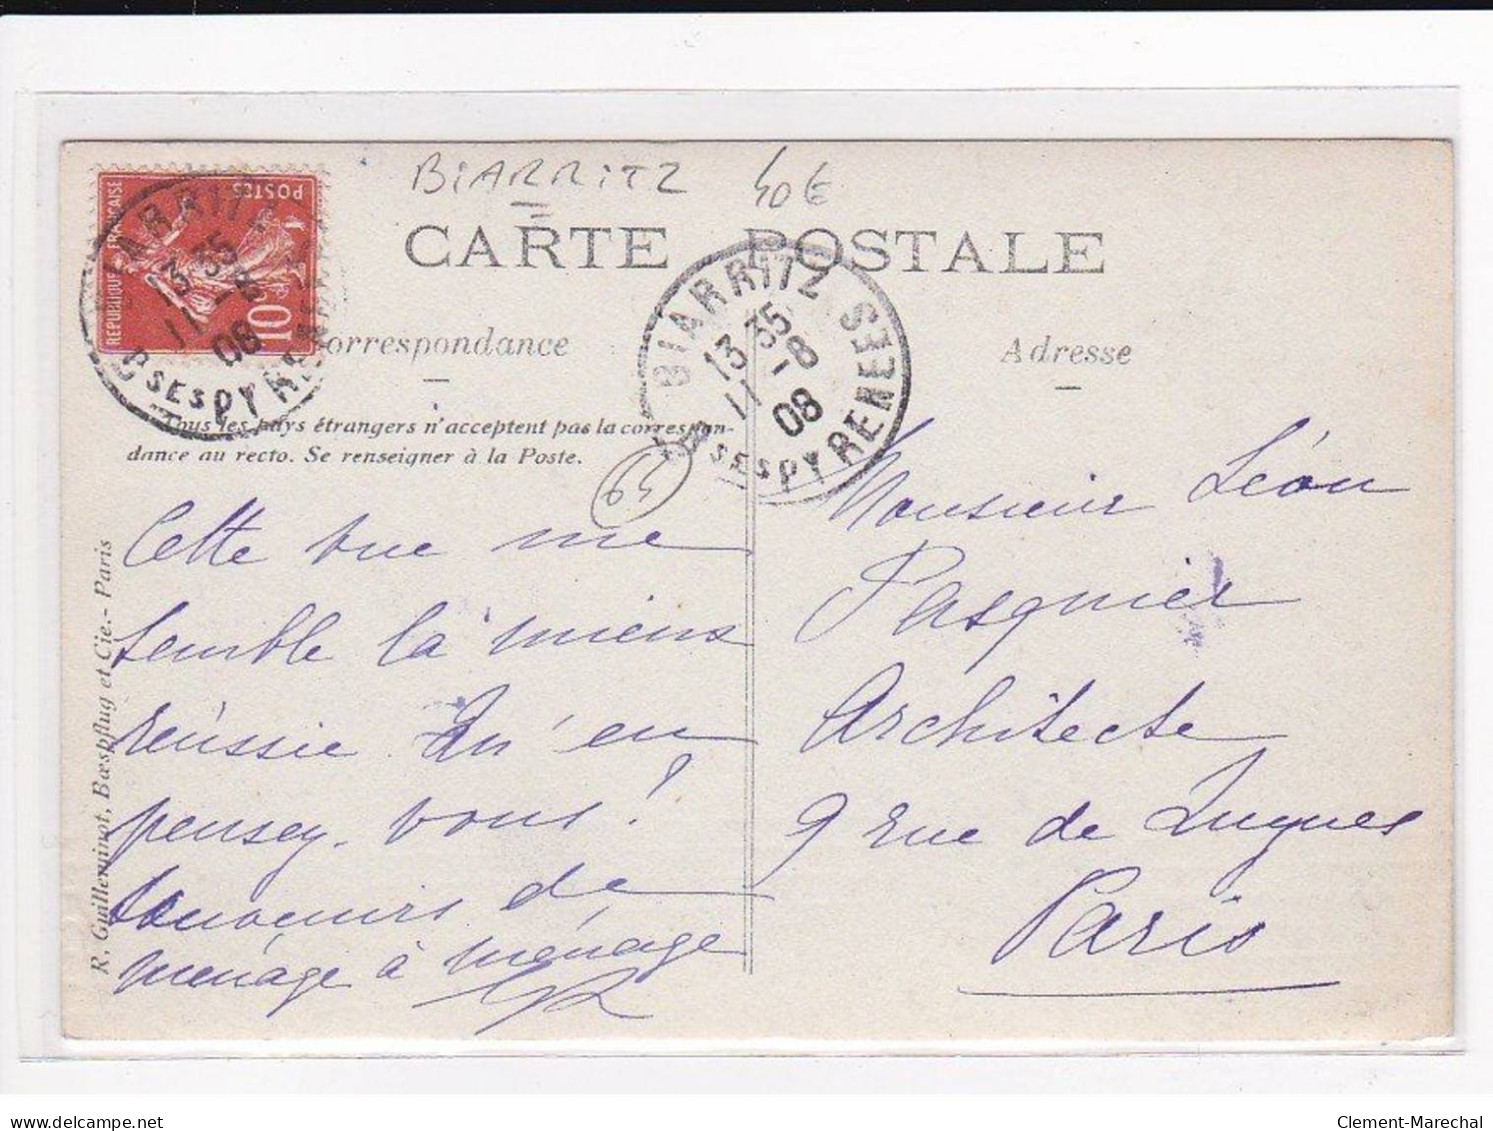 BIARRITZ 40€
CARTE POSTALE
Correspondance
Adresse
Tous les pays étrangers n'acceptent pas la correspon-
dance au recto. Se renseigner à la Poste.
REPUBLIQUE FRANÇAISE
POSTES
10c
BIARRITZ
13 35
11 -8
08
Bses PYRENEES
BIARRITZ
13 35
11 -8
08
Bses PYRENEES
64
Cette vue me
semble la mieux
réussie. Qu'en
pensez-vous?
Souvenirs de
ménage à ménage
Monsieur Léon
Pasquier
Architecte
9 rue de Luynes
Paris
R. Guilleminot, Bœspflug et Cie.- Paris
Clement-Marechal